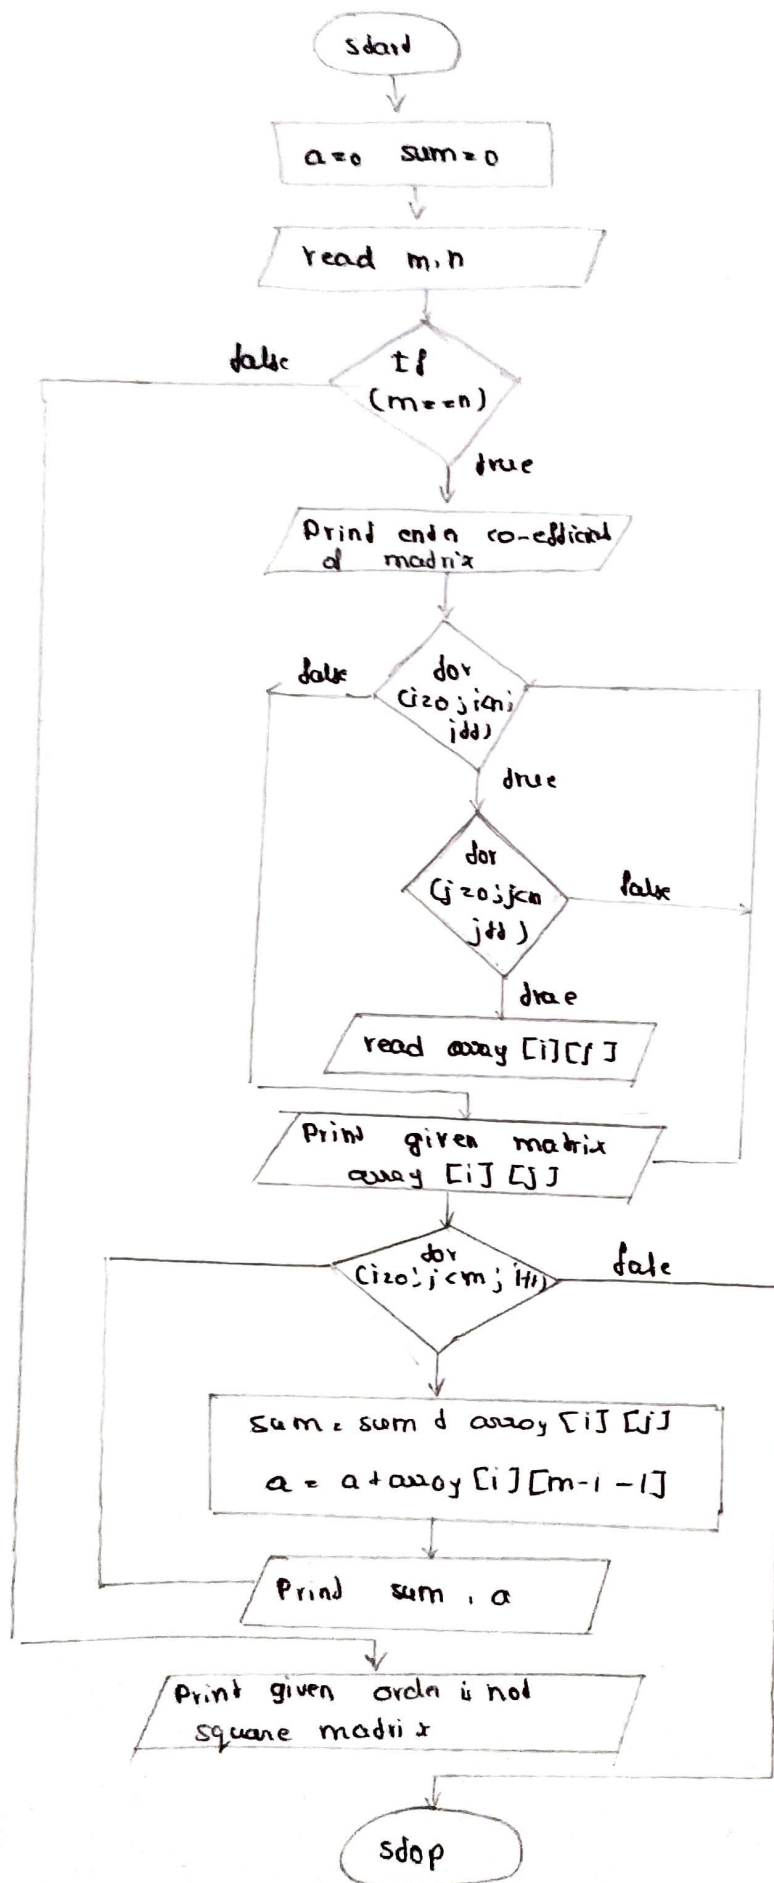 start
a=0 sum=0
read m,n
false
If
(m==n)
true
Print enter co-efficient
of matrix
false
for
(i=0; i<n;
i++)
true
for
(j=0; j<n
j++)
false
true
read array [i][j]
Print given matrix
array [i] [j]
for
(i=0; i<m; i++)
false
sum = sum + array [i] [j]
a = a + array [i] [m-1-1]
Print sum, a
Print given order is not
square matrix
stop